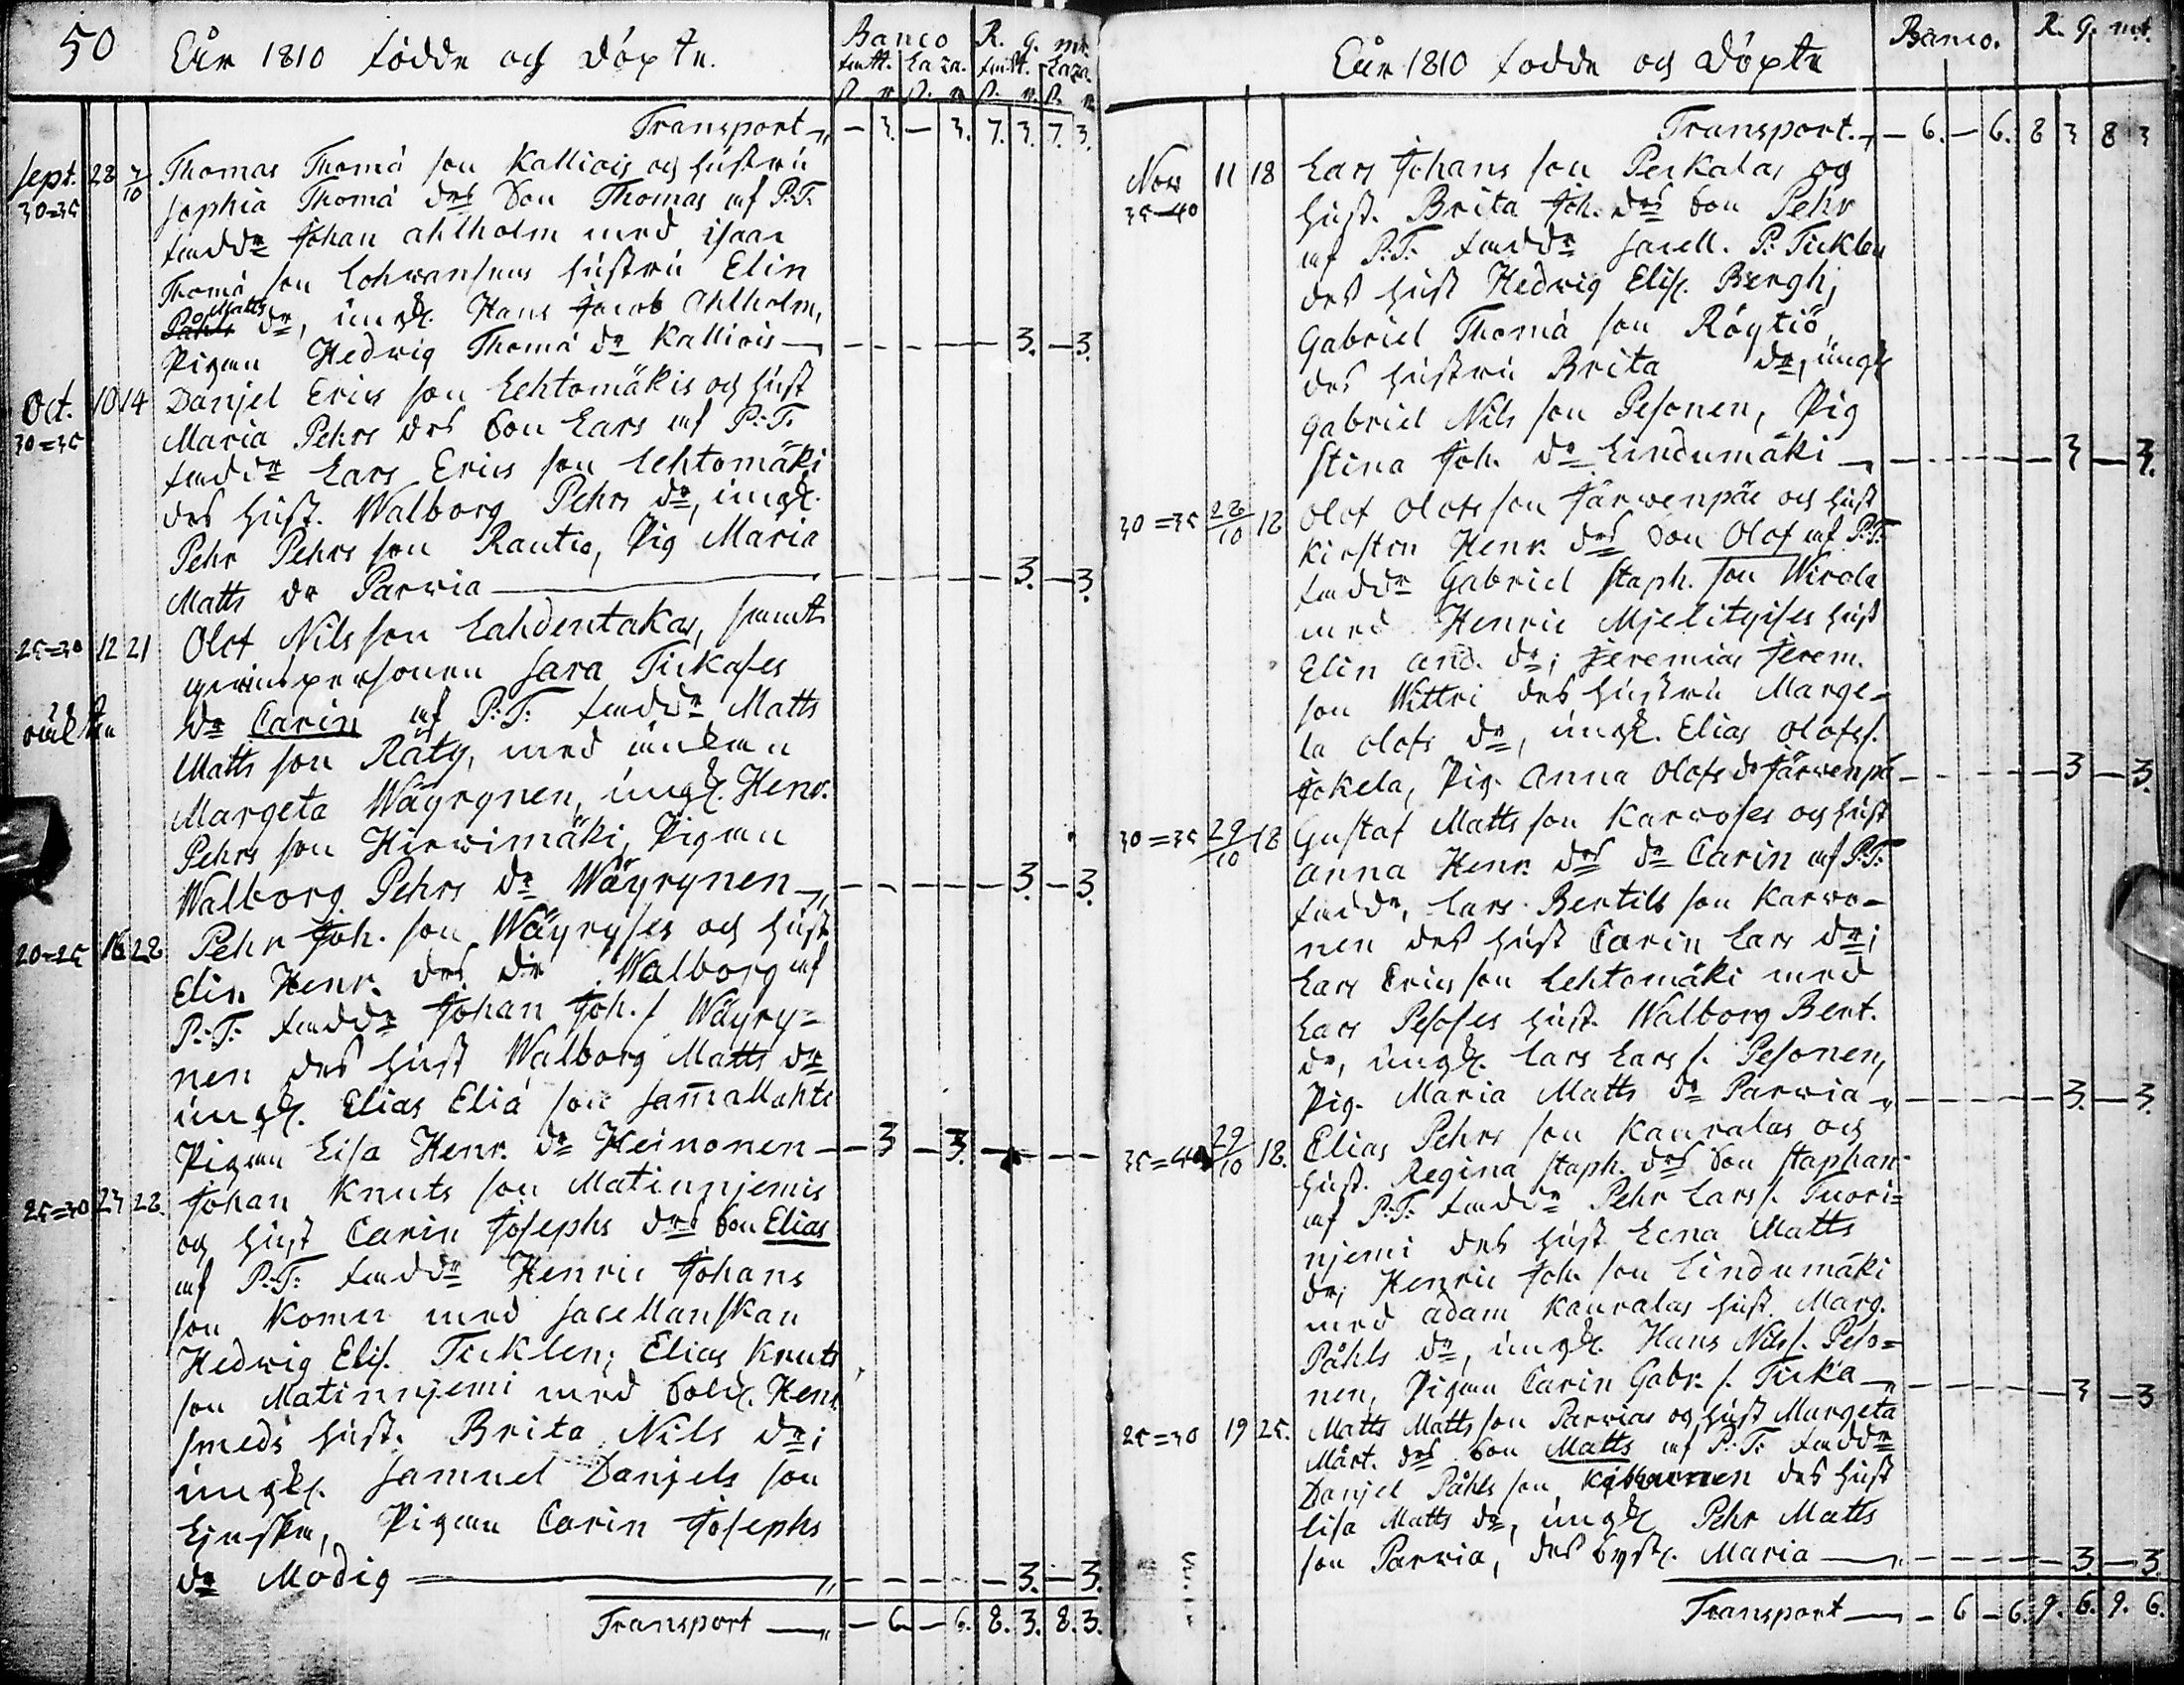 50 Åhr 1810 födde och döpte.
Banco R. g. mt.
fatt. Laza. fatt. Laza.
Transport — 3. — 3. 7. 3. 7. 3.
Sept. 28 7/10 Thomas Thomæ son Kalliois och hustru
30=35 Sophia Thomæ drs Son Thomas af P.T.
fadd. Johan Ahlholm med Isaac
Thomæ son Lohwansuus hustru Elin
Påhls Matts dr, ungk. Hans Jacob Ahlholm,
Pigan Hedwig Thomæ dr Kalliois — 3. — 3.
Oct. 10 14 Danjel Erics son Lehtomäkis och hust
30=35 Maria Pehrs drs Son Lars af P:T.
faddr Lars Erics son Lehtomäki
des hust. Walborg Pehrs dr, ungk.
Pehr Pehrs son Rautio, Pig Maria
Matts dr Parvia — 3. — 3.
25=30 12 21 Olof Nils son Lahdentakas, samt
qwinspersonen Sara Tickases
oäkta dr Carin af P:T: faddr Matts
Matts son Räty, med änkan
Margeta Wäyrynen, ungk. Henr.
Pehrs son Hirwimäki, Pigan
Walborg Pehrs dr Wäyrynen — 3. — 3.
20=25 16 28 Pehr Joh. son Wäyryses och hust
Elin Henr. drs dr Walborg af
P.T. faddr Johan Joh. s Wäyry=
nen des hust Walborg Matts dr
ungk. Elias Eliæ son Samallahti
Pigan Lisa Henr. dr Heinonen — 3 — 3.
25=30 23 28. Johan Knuts son Matinnjemis
och hust Carin Josephs drs Son Elias
af P.T: faddr Henric Johans
son Komu med Sacellanskan
Hedwig Elis. Ticklen; Elias Knuts
son Matinnjemi med Sold. Henr.
Smeds hust. Brita Nils dr;
ungk. Samuel Danjels son
Pigan Carin Josephs
dr Modig — 3. — 3.
Transport — 6 — 6. 8. 3. 8. 3.
Åhr 1810 födde och döpte
Banco. R. g. mt.
Transport. — 6. — 6. 8 3 8 3
Nov 11 18 Lars Johans son Perkalas og
35-40 hust. Brita Joh. drs Son Pehr
af P.T: faddr Sacell. P. Ticklen
des hust Hedwig Elis. Bergh;
Gabriel Thomæ son Röytiö
des hustru Brita dr, ungk
Gabriel Nils son Pesonen, Pig
Stina Joh. dr Lindumäki — 3 — 3.
30=35 28/10 18 Olof Olofs son Järwenpäs och hust
Kirstin Henr. drs Son Olof af P:T:
faddr Gabriel Staph. son Wirola
med Henric Mjelityises hust
Elin And. dr; Jeremias Jerem.
son Wittri des hustru Marge=
ta Olofs dr, ungk. Elias Olofs s.
Jokela, Pig. Anna Olofs dr Järwenpä — 3 — 3.
30=35 29/10 18 Gustaf Matts son Karwoses och hust
Anna Henr. drs dr Carin af P.T:
faddr, Lars Bertils son Karwo-
nen des hust Carin Lars dr;
Lars Erics son Lehtomäki med
Lars Pesoses hust. Walborg Bert.
dr, ungk. Lars Lars s. Pesonen,
Pig. Maria Matts dr Parvia — 3. — 3.
35=40 29/10 18. Elias Pehrs son Kauralas och
hust. Regina Staph. drs Son Staphan
af P:T: faddr Pehr Lars s. Tuori=
njemi des hust Lena Matts
dr; Henric Joh. son Lindumäki
med Adam Kauralas hust. Marg.
Påhls dr, ungk. Hans Nils s. Peso=
nen, Pigan Carin Gabr. s. Ticka — 3 — 3
25=30 19 25. Matts Matts son Parvias och hust Margeta
Mårt. drs Son Matts af P.T: faddr
Danjel Påhls son des hust
Lisa Matts dr, ungk Pehr Matts
son Parvia, des Syst. Maria — 3. — 3.
Transport — 6 — 6. 9. 6. 9. 6.